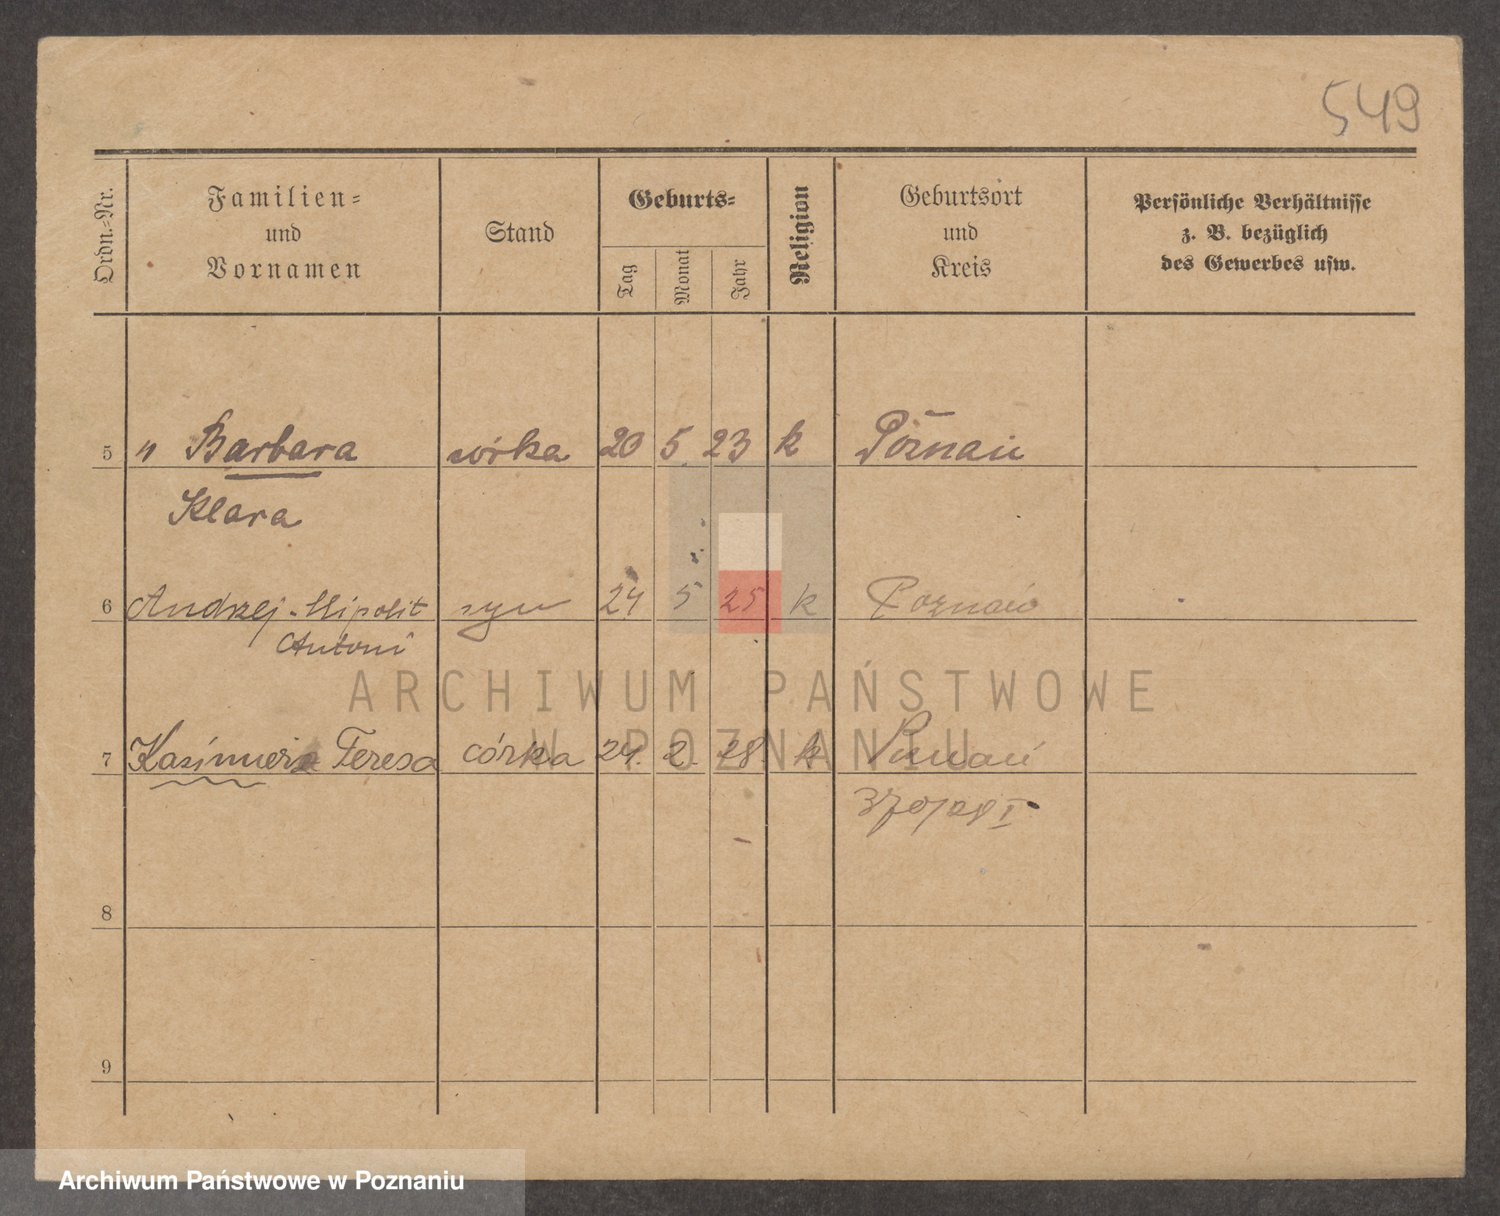 549
Ordn.-Nr.
Familien-
und
Vornamen
Stand
Geburts-
Tag
Monat
Jahr
Religion
Geburtsort
und
Kreis
Persönliche Verhältnisse
z. B. bezüglich
des Gewerbes usw.
5 " Barbara córka 20 5 23 k Poznań
Klara
6 Andrzej-Hipolit syn 24 5 25 k Poznań
Antoni
ARCHIWUM PAŃSTWOWE
W POZNANIU
7 Teresa córka 24. 2. 28. k Poznań
8
9
Archiwum Państwowe w Poznaniu